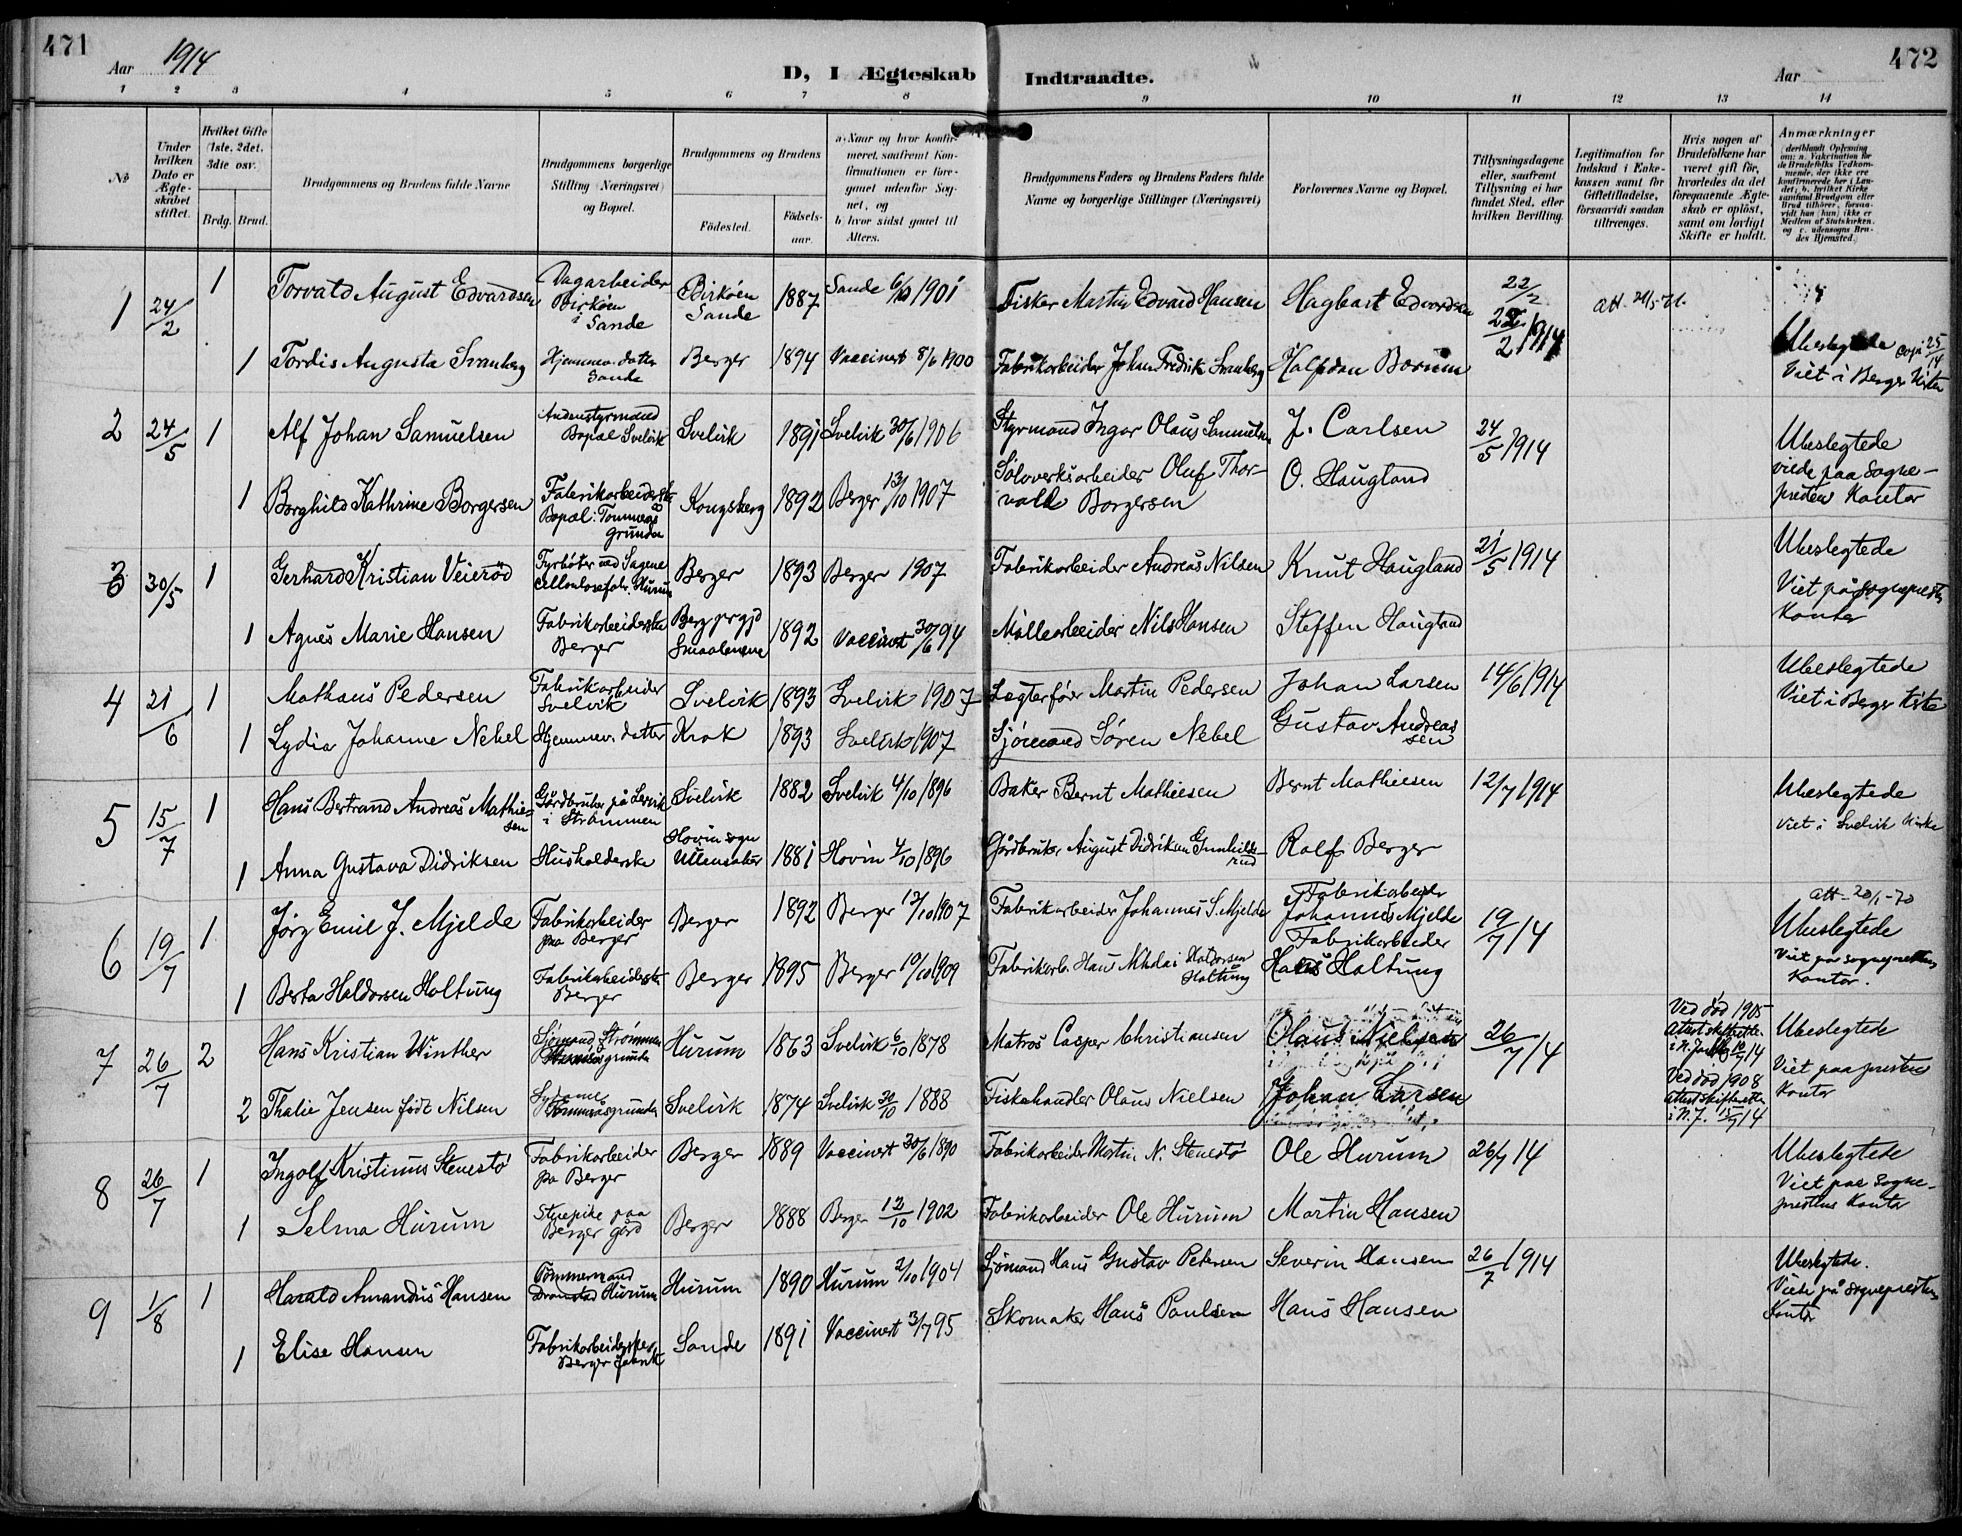 471
Aar 1914
D, I Ægteskab Indtraadte.
Aar
472
1 2 3 4 5 6 7 8 9 10 11 12 13 14
No
Under hvilken Dato er Ægteskabet stiftet.
Hvilket Gifte (1ste, 2det, 3dte osv.
Brdg. Brud.
Brudgommens og Brudens fulde Navne
Brudgommens borgerlige Stilling (Næringsvei) og Bopæl.
Brudgommens og Brudens
Födested.
Födsels-aar.
a. Naar og hvor konfirmeret, saafremt Konfirmationen er foregaaet udenfor Sognet, og
b. hvor sidst gaaet til Alters.
Brudgommens Faders og Brudens Faders fulde Navne og borgerlige Stillinger (Næringsvei)
Forlovernes Navne og Bopæl.
Tillysningsdagene eller, saafremt Tillysning ei har fundet Sted, efter hvilken Bevilling.
Legitimation for Indskud i Enkekassen samt for Giftetilladelse, forsaavidt saadan tiltrænges.
Hvis nogen af Brudefolkene har været gift för, hvorledes da det foregaaende Ægteskab er oplöst, samt om lovligt Skifte er holdt.
Anmærkninger (deriblandt Oplysning om: a. Vakcination for de Brudefolks Vedkommende, der ikke ere konfirmerede her i Landet; b. hvilket Kirkesamfund Brudgom eller Brud tilhörer, forsaavidt han (hun) ikke er Medlem af Statskirken, og c. udensogns Brudes Hjemsted.)
1 24/2 1 Torvald August Edvardsen Dagarbeider Birköen i Sande Birköen Sande 1887 Sande 6/10 1901 Fisker Martin Edvard Hansen Hagbart Edvardsen 22/2 1914
1 Tordis Augusta Svanberg Hjemmev. datter Sande Berger 1894 Vaccinert 8/6 1900 Fabrikarbeider Johan Fredrik Svanberg Halfdan Borum Ubeslegtede Viet i Berger Kirke
2 24/5 1 Alf Johan Samuelsen Andenstyrmand Bopæl Svelvik Svelvik 1891 Svelvik 30/6 1906 Styrmand Ingar Olaus Samuelsen J. Carlsen 24/5 1914 Ubeslegtede viede paa Sogneprestens Kontor
1 Borghild Kathrine Borgersen Fabrikarbeiderske Bopæl: Tømmeraasgrunden Kongsberg 1892 Berger 13/10 1907 Sølvverksarbeider Oluf Thorvald Borgersen O. Haugland
3 30/5 1 Gerhard Kristian Veierød Fyrbøter ved Sagene Cellulosefabr. Hurum Berger 1893 Berger 1907 Fabrikarbeider Andreas Nilsen Knut Haugland 21/5 1914 Ubeslegtede Viet på Sogneprestens Kontor
1 Agnes Marie Hansen Fabrikarbeiderske Berger Smaalenene 1892 Vaccinert 30/6 94 Møllearbeider Nils Hansen Steffen Haugland
4 21/6 1 Mathæus Pedersen Fabrikarbeider Svelvik Svelvik 1893 Svelvik 1907 Lægterfører Martin Pedersen Johan Larsen 14/6 1914 Ubeslegtede Viet i Berger Kirke
1 Lydia Johanne Nebel Hjemmev. datter Krok 1893 Svelvik 1907 Sjömand Søren Nebel Gustav Andreassen
5 15/7 1 Hans Bertrand Andreas Mathiesen Gårdbruker på Lervik i Strømmen Svelvik 1882 Svelvik 4/10 1896 Baker Bernt Mathiesen Bernt Mathiesen 12/7 1914 Ubeslegtede Viet i Svelvik Kirke
1 Anna Gustava Didriksen Husholderske Hovin sogn Ullensaker 1881 Hovin 4/10 1896 Gårdbruker August Didriksen Gunhildsrud Rolf Berger
6 19/7 1 Jörg Emil J. Mjelde Fabrikarbeider paa Berger Berger 1892 Berger 13/10 1907 Fabrikarbeider Johannes S. Mjelde Fabrikarbeider Johannes Mjelde 19/7 14 att. 20/1-70 Ubeslegtede Viet paa sogneprestens Kontor.
1 Berta Haldorsen Holtung Fabrikarbeiderske Berger Berger 1895 Berger 10/10 1909 Fabrikarb. Hans Nikolai Haldorsen Holtung Fabrikarbeider Hans Holtung
7 26/7 2 Hans Kristian Winther Sjömand, Strømmen Hurum 1863 Svelvik 6/10 1878 Matros Casper Christiansen Olaus Nielsen 26/7 14 Ved død 1905 Attest skifteretten i N. Jarlsb. 10/7 14 Ubeslegtede Viet paa prestens Kontor
2 Thalie Jensen født Nilsen Tømmeraasgrunden Svelvik 1874 Svelvik 30/10 1888 Fiskehandler Olaus Nielsen Johan Larsen Ved død 1908 Attest skifteretten i N. J. 15/7 14
8 26/7 1 Ingolf Kristinus Stenestö Fabrikarbeider paa Berger Berger 1889 Vaccinert 30/6 1890 Fabrikarbeider Martin N. Stenestö Ole Hurum 26/7 14 Ubeslegtede Viet paa Sogneprestens Kontor
1 Selma Hurum Stuepike paa Berger gård Berger 1888 Berger 12/10 1902 Fabrikarbeider Ole Hurum Martin Hansen
9 1/8 1 Harald Amandus Hansen Tømmermand Hurum Hurum 1890 Hurum 2/10 1904 Sjömand Hans Gustav Petersen Severin Hansen 26/7 1914 Ubeslegtede. Viede på Sogneprestens Kontor
1 Elise Hansen Fabrikarbeiderske, Berger fabrik Sande 1891 Vaccinert 13/7 95 Skomaker Hans Paulsen Hans Hansen